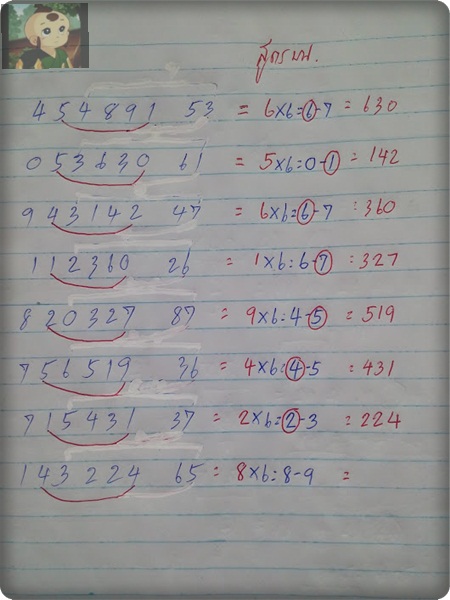 สูตรบน.
454891 53 = 6×6=6-7 : 630
053630 61 = 5×6:0-1 = 142
943142 47 = 6×6=6-7 : 360
112360 26 = 1×6:6-7 : 327
820327 87 = 9×6:4-5 = 519
756519 36 = 4×6:4-5 : 431
715431 37 = 2×6=2-3 : 224
143224 65 = 8×6:8-9 =